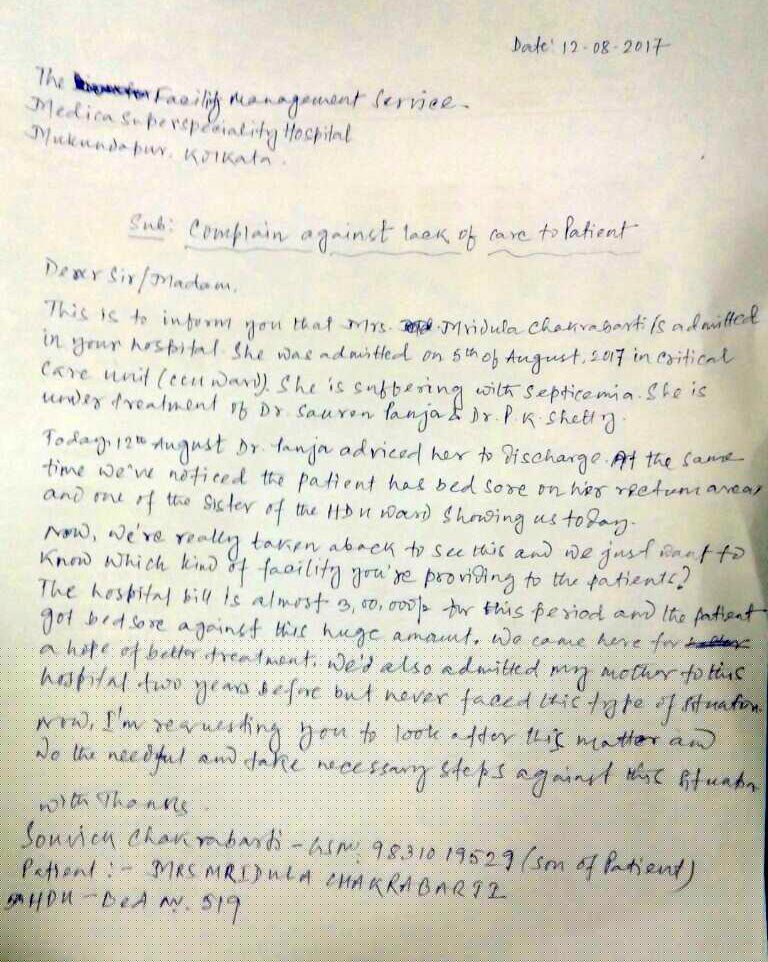 Date: 12-08-2017
The Facility Management Service.
Medica Superspeciality Hospital
Mukundapur. Kolkata.
Sub: Complain against lack of care to Patient
Dear Sir/Madam,
This is to inform you that Mrs. Mridula Chakrabarti is admitted
in your hospital. She was admitted on 5th of August, 2017 in critical
care unit (ccu ward). She is suffering with septicemia. She is
under treatment of Dr. Sauren Panja & Dr. P. K. Shetty.
Today, 12th August Dr. Panja adviced her to discharge. At the same
time we've noticed the patient has bed sore on her rectum area,
and one of the sister of the HDU ward showing us today.
Now, we're really taken aback to see this and we just want to
know which kind of facility you're providing to the patients?
The hospital bill is almost 3,00,000/- for this period and the patient
got bedsore against this huge amount. We came here for
a hope of better treatment. We'd also admitted my mother to this
hospital two years before but never faced this type of situation.
Now, I'm requesting you to look after this matter and
do the needful and take necessary steps against this situation
with Thanks.
Souvick Chakrabarti - GSM: 9831019529 (son of Patient)
Patient :- MRS MRIDULA CHAKRABARTI
HDU - Bed No. 519